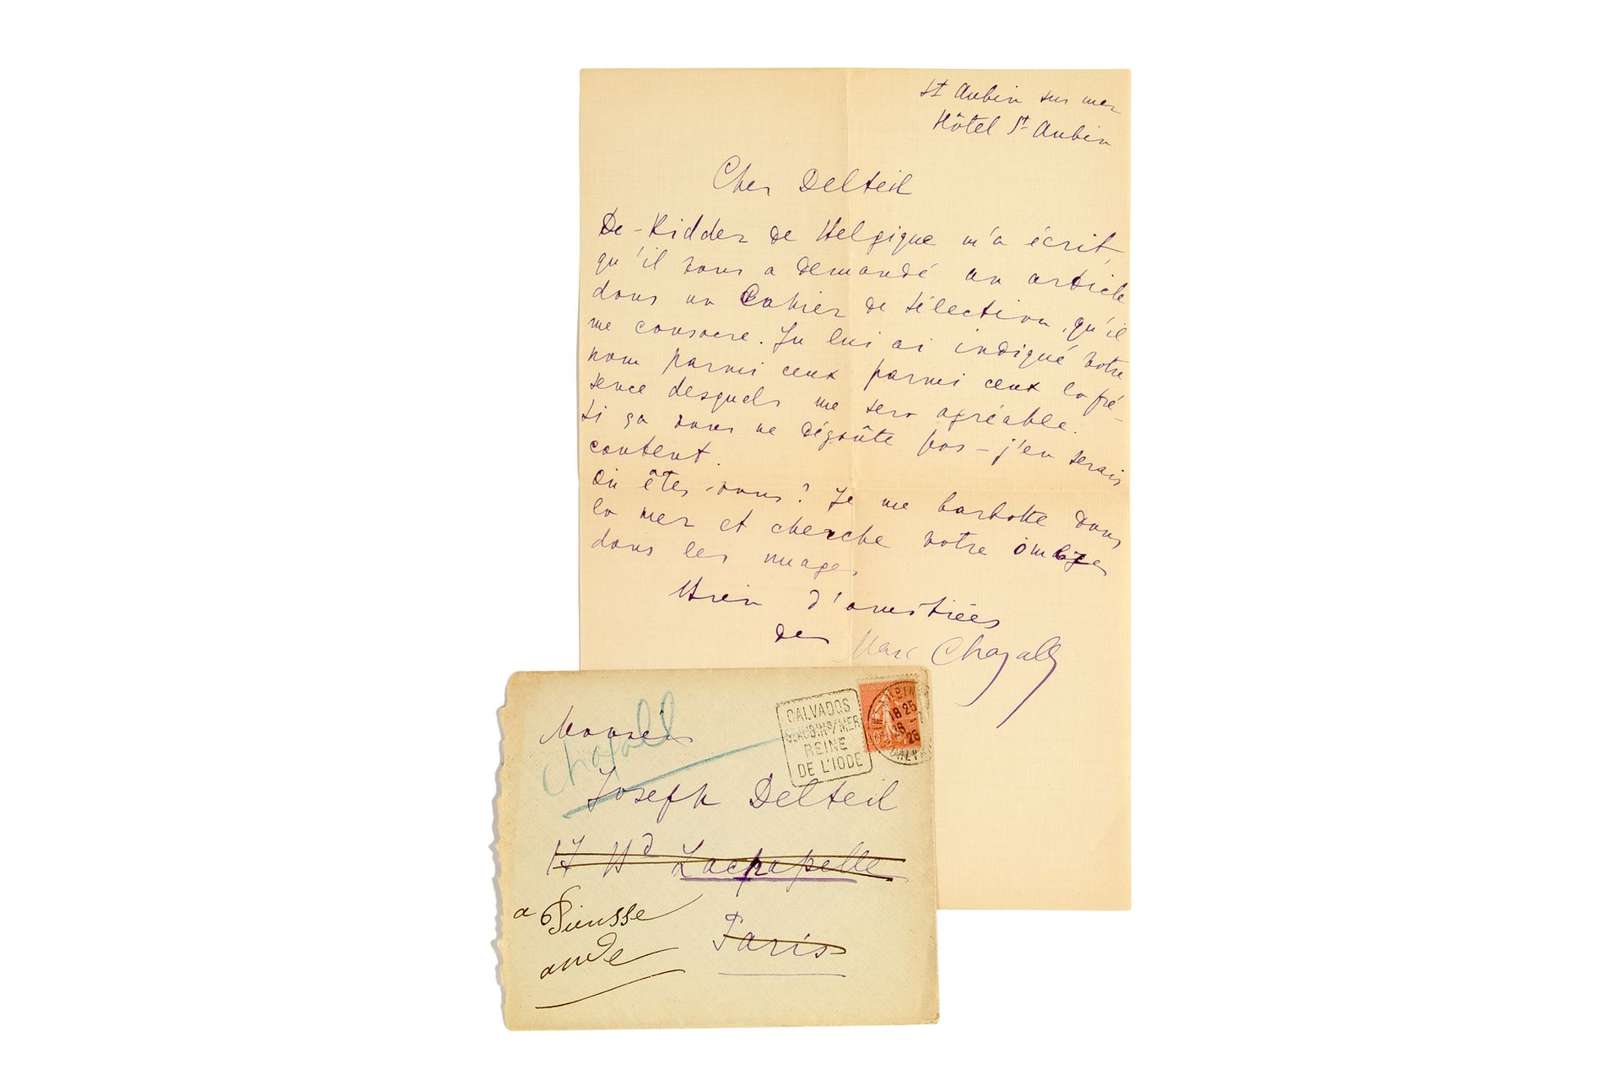 St Aubin sur mer
Hôtel St Aubin
Cher Delteil
De-Ridder de Belgique m'a écrit,
qu'il vous a demandé un article
dans un Cahier de Sélection, qu'il
me consacre. Je lui ai indiqué votre
nom parmi ceux parmi ceux la pré-
sence desquels me sera agréable.
Si ça vous ne dégoûte pas – j'en serais
content.
Où êtes-vous? Je me barbotte dans
la mer et cherche votre ombre
dans les nuages,
Bien d'amitiées
de Marc Chagall
Monsieur
Chagall
Joseph Delteil
17 Bd Lachapelle
Paris
a Pieusse
aude
CALVADOS
ST AUBIN S/MER
REINE
DE L'IODE
18 25
26